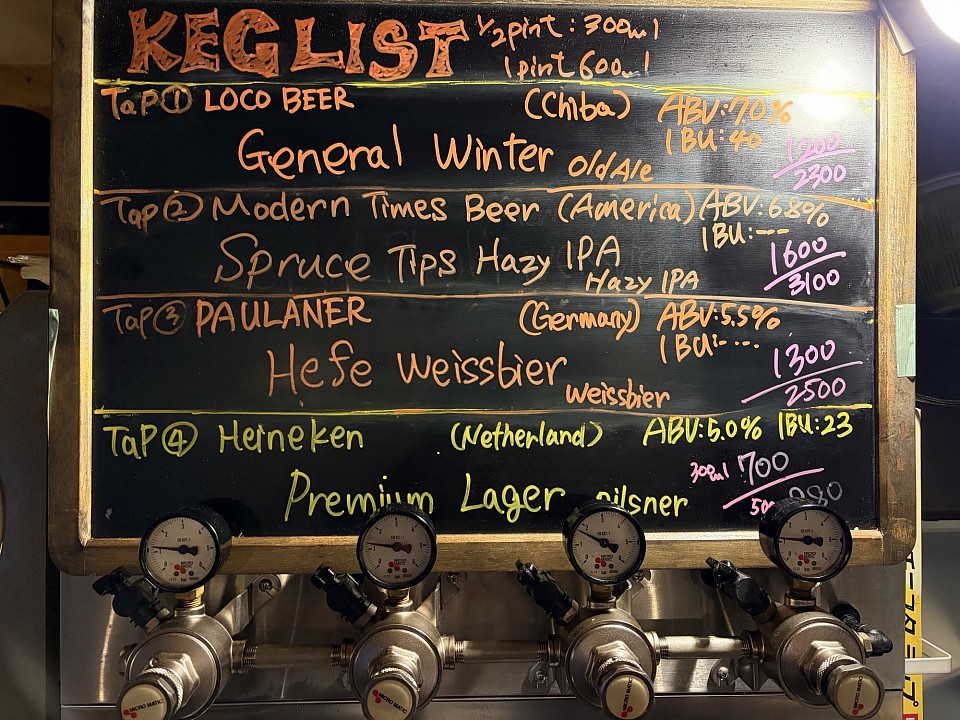 KEG LIST 1/2pint : 300ml
1pint 600ml
TaP① LOCO BEER (Chiba) ABV:7.0%
IBU:40
General Winter Old Ale 1200/2300
Tap② Modern Times Beer (America) ABV:6.8%
IBU:---
Spruce Tips Hazy IPA 1600/3100
Hazy IPA
Tap③ PAULANER (Germany) ABV:5.5%
IBU:----
Hefe Weissbier 1300/2500
weissbier
TaP④ Heineken (Netherland) ABV:5.0% IBU:23
Premium Lager pilsner 300ml 700
MICRO MATIC
MICRO MATIC
MICRO MATIC
MICRO MATIC